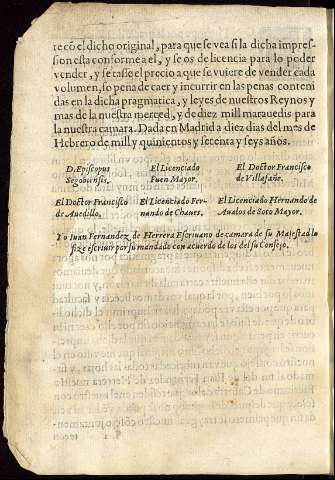 te cõ el dicho original, para que se vea si la dicha impres-
sion esta conforme a el, y se os de licencia para lo poder
vender, y se tasse el precio a que se vuiere de vender cada
volumen, so pena de caer y incurrir en las penas conteni
das en la dicha pragmatica, y leyes de nuestros Reynos y
mas de la nuestra merced, y de diez mill marauedis para
la nuestra camara. Dada en Madrid a diez dias del mes de
Hebrero de mill y quinientos y setenta y seys años.
D. Episcopus El Licenciado El Doctor Francisco
Segobiensis. Fuen Mayor. de Villafañe.
El Doctor Francisco El Licenciado Fer- El Licenciado Hernando de
de Auedillo. nando de Chaues. Aualos de Soto Mayor.
Yo Iuan Fernandez de Herrera Escriuano de camara de su Magestad lo
fize escriuir por su mandado con acuerdo de los del su Consejo.